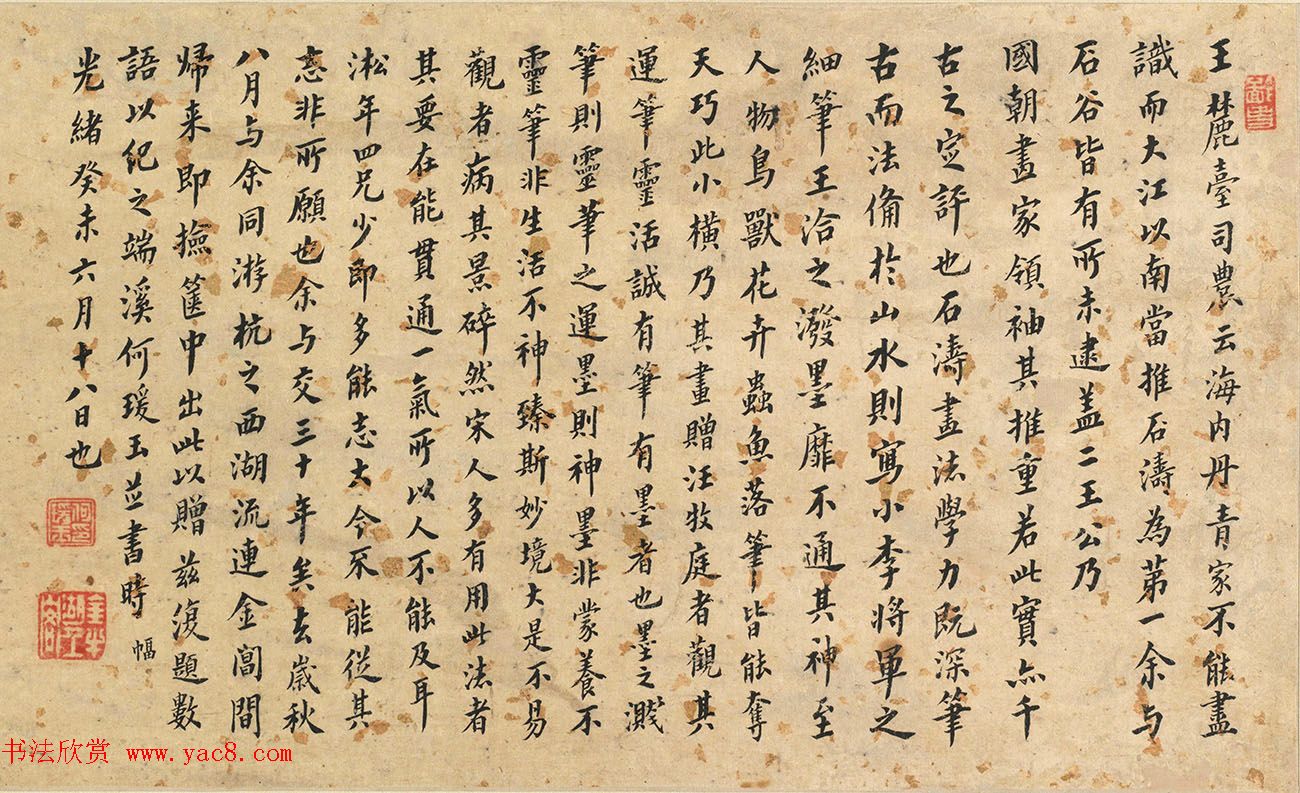 王麓臺司農云海内丹青家不能盡
識而大江以南當推石濤為第一余与
石谷皆有所未逮盖二王公乃
國朝畫家領袖其推重若此實亦千
古之定評也石濤畫法學力既深筆
古而法備於山水則寫小李將軍之
細筆王洽之潑墨靡不通其神至
人物鳥獸花卉蟲魚落筆皆能奪
天巧此小橫乃其畫贈汪牧庭者觀其
運筆靈活誠有筆有墨者也墨之濺
筆則靈筆之運墨則神墨非蒙養不
靈筆非生活不神臻斯妙境大是不易
觀者病其景碎然宋人多有用此法者
其要在能貫通一氣所以人不能及耳
淞年四兄少即多能志大今不能從其
志非所願也余与交三十年矣去歲秋
八月与余同游杭之西湖流連金閶間
帰来即撿篋中出此以贈兹復題數
語以纪之端溪何瑗玉並書時
幅
光緒癸未六月十八日也
书法欣赏 www.yac8.com